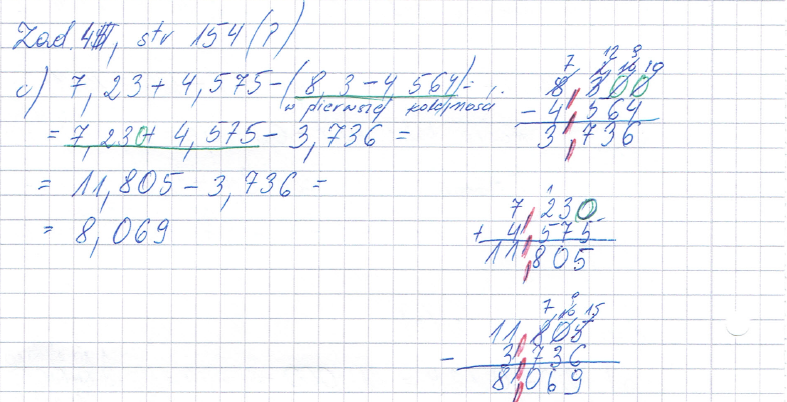 Zad. 4, str 154 (?)
c) 7,23 + 4,575 - (8,3 - 4,564) =
w pierwszej kolejności
= 7,230 + 4,575 - 3,736 =
= 11,805 - 3,736 =
= 8,069
7 12 9
10 10
8,300
- 4,564
3,736
1
7,230
+ 4,575
11,805
9
7 10 15
11,805
- 3,736
8,069